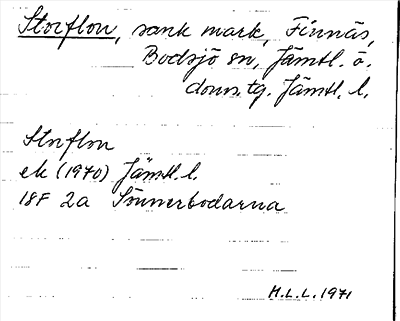 Storflon, sank mark, Finnäs,
Bodsjö sn, Jämtl. ö.
doms.tg. Jämtl. l.
Storflon
ek (1970) Jämtl. l.
18F 2a Sönnerbodarna
H.L.L. 1971